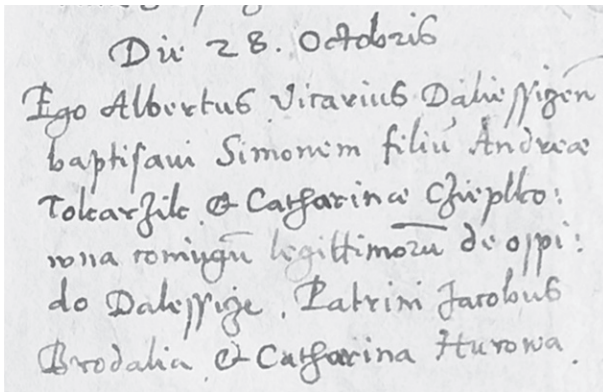 Die 28. Octobris
Ego Albertus Vicarius Daliessigen̄
baptisaui Simonem filiū Andreæ
Tokarzik & Catharinæ Czieplko:
wna coniugū legittimorū de oppi:
do Dalessize. Patrini Jacobus
Brodalia & Catharina Hurowa.